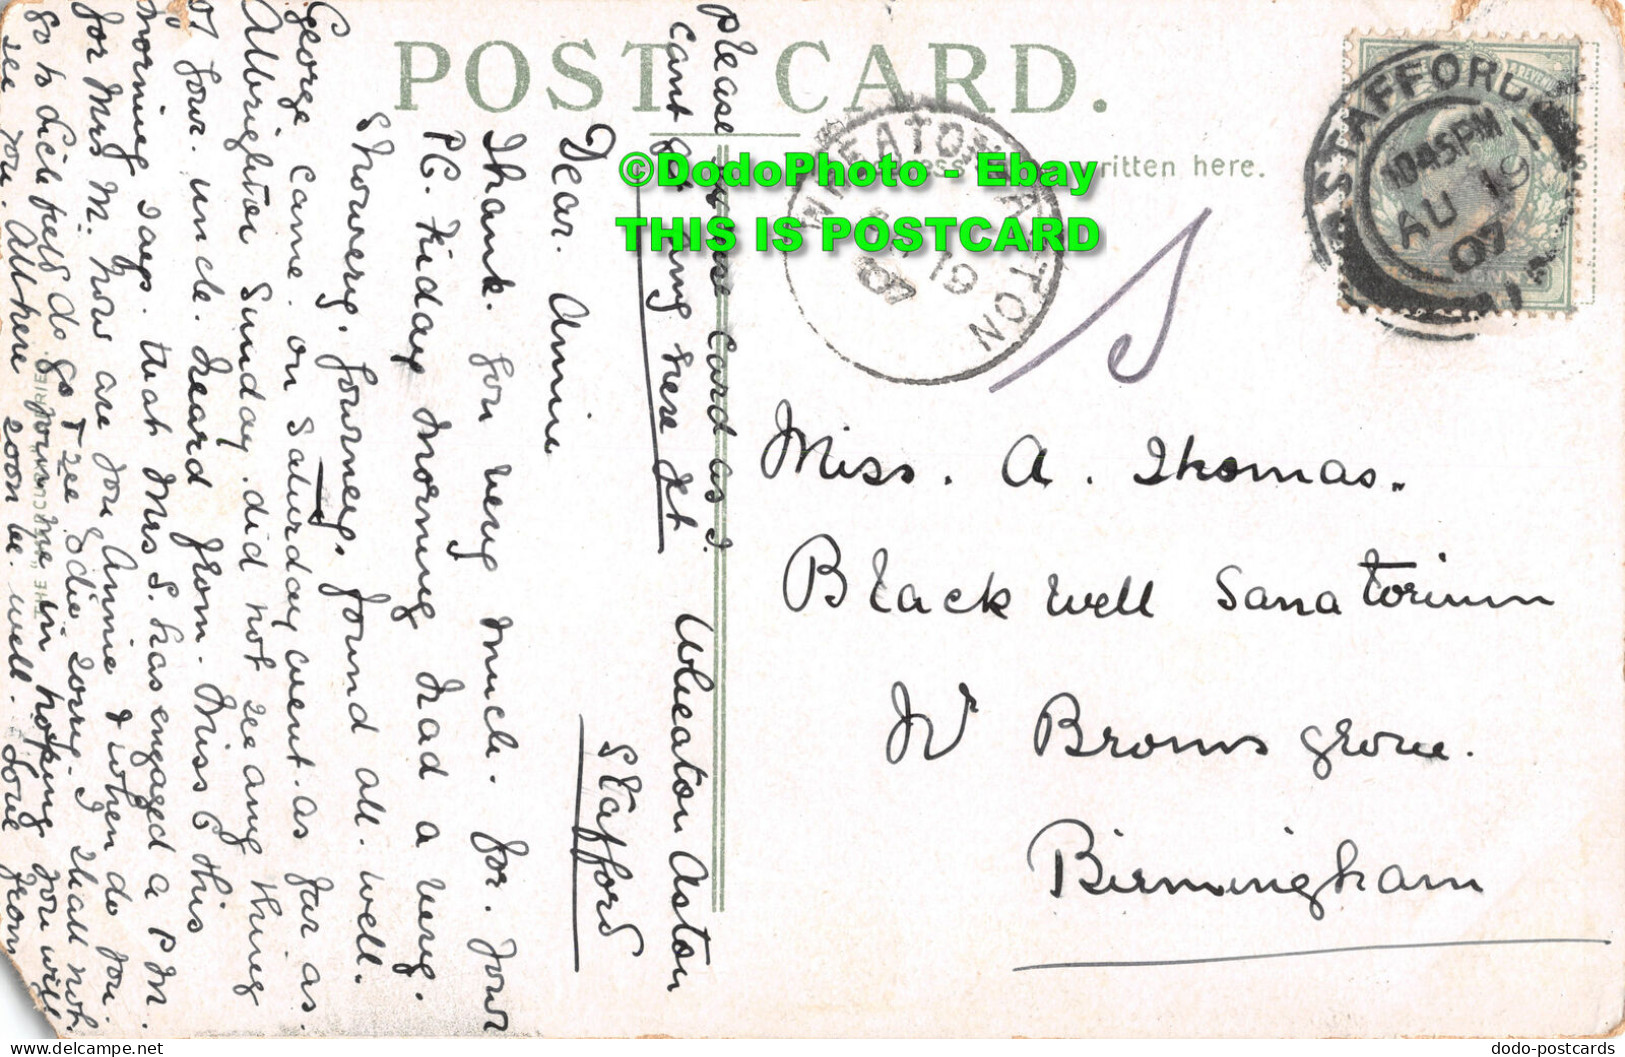 POST CARD.
ritten here.
©DodoPhoto - Ebay
THIS IS POSTCARD
WHEATON ASTON
19
07
STAFFORD
10 45 PM
AU 19
07
Miss. A. Thomas.
Blackwell Sanatorium
Nr Bromsgrove.
Birmingham
Please card as I
cant get any here yet
Wheaton Aston
Stafford
Dear. Annie
Thank. you very much. for. your
PC. Friday Morning had a very.
Showery. Journey. found all. well.
George came. on Saturday went. as far as.
Albrighton Sunday. did not see any thing
of your. uncle. heard from. Miss C this
morning says. that Mrs S. has engaged a P M.
for Mrs M. how are you Annie & when do you
go to Lichfield do go & see Edie sorry. I shall not
see you. All here soon be. well. Love from
in hoping you will
dodo-postcards